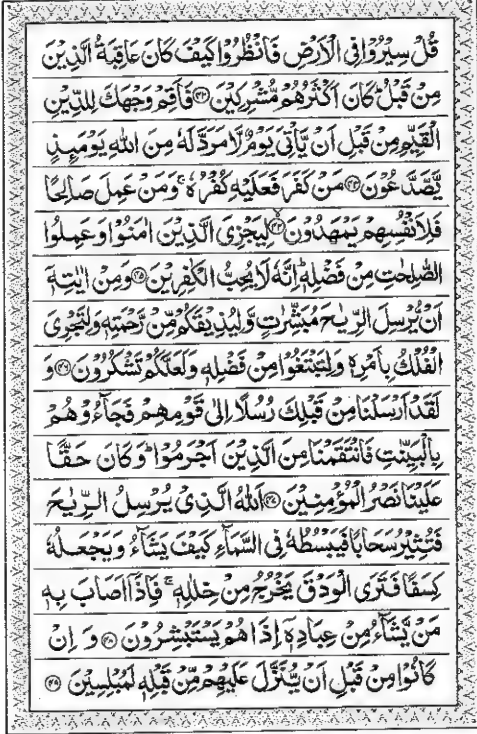 قُلْ سِيْرُوْا فِي الْاَرْضِ فَانْظُرُوْا كَيْفَ كَانَ عَاقِبَةُ الَّذِيْنَ
مِنْ قَبْلُ ؕ كَانَ اَكْثَرُهُمْ مُّشْرِكِيْنَ ۝۴۲ فَاَقِمْ وَجْهَكَ لِلدِّيْنِ
الْقَيِّمِ مِنْ قَبْلِ اَنْ يَّاْتِيَ يَوْمٌ لَّا مَرَدَّ لَهٗ مِنَ اللّٰهِ يَوْمَىِٕذٍ
يَّصَّدَّعُوْنَ ۝۴۳ مَنْ كَفَرَ فَعَلَيْهِ كُفْرُهٗ ۚ وَمَنْ عَمِلَ صَالِحًا
فَلِاَنْفُسِهِمْ يَمْهَدُوْنَ ۝۴۴ۙ لِيَجْزِيَ الَّذِيْنَ اٰمَنُوْا وَعَمِلُوا
الصّٰلِحٰتِ مِنْ فَضْلِهٖ ؕ اِنَّهٗ لَا يُحِبُّ الْكٰفِرِيْنَ ۝۴۵ وَمِنْ اٰيٰتِهٖۤ
اَنْ يُّرْسِلَ الرِّيٰحَ مُبَشِّرٰتٍ وَّلِيُذِيْقَكُمْ مِّنْ رَّحْمَتِهٖ وَلِتَجْرِيَ
الْفُلْكُ بِاَمْرِهٖ وَلِتَبْتَغُوْا مِنْ فَضْلِهٖ وَلَعَلَّكُمْ تَشْكُرُوْنَ ۝۴۶ وَ
لَقَدْ اَرْسَلْنَا مِنْ قَبْلِكَ رُسُلًا اِلٰى قَوْمِهِمْ فَجَآءُوْهُمْ
بِالْبَيِّنٰتِ فَانْتَقَمْنَا مِنَ الَّذِيْنَ اَجْرَمُوْا ؕ وَكَانَ حَقًّا
عَلَيْنَا نَصْرُ الْمُؤْمِنِيْنَ ۝۴۷ اَللّٰهُ الَّذِيْ يُرْسِلُ الرِّيٰحَ
فَتُثِيْرُ سَحَابًا فَيَبْسُطُهٗ فِي السَّمَآءِ كَيْفَ يَشَآءُ وَيَجْعَلُهٗ
كِسَفًا فَتَرَى الْوَدْقَ يَخْرُجُ مِنْ خِلٰلِهٖ ۚ فَاِذَاۤ اَصَابَ بِهٖ
مَنْ يَّشَآءُ مِنْ عِبَادِهٖۤ اِذَا هُمْ يَسْتَبْشِرُوْنَ ۝۴۸ وَ اِنْ
كَانُوْا مِنْ قَبْلِ اَنْ يُّنَزَّلَ عَلَيْهِمْ مِّنْ قَبْلِهٖ لَمُبْلِسِيْنَ ۝۴۹